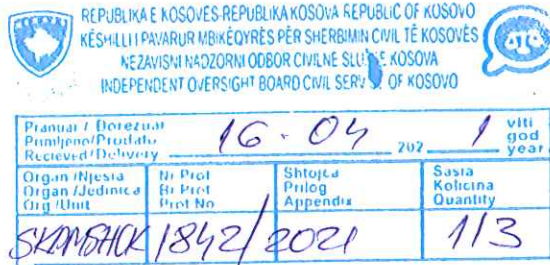 REPUBLIKA E KOSOVËS-REPUBLIKA KOSOVA REPUBLIC OF KOSOVO
KËSHILLI I PAVARUR MBIKËQYRËS PËR SHËRBIMIN CIVIL TË KOSOVËS
NEZAVISNI NADZORNI ODBOR CIVILNE KOSOVA
INDEPENDENT OVERSIGHT BOARD CIVIL OF KOSOVO
Pranuar / Dorëzuar
Primljeno/Prodato
Recieved/Delivery 16-04 2021 viti god year
Organ /Njësia Organ /Jedinica Org /Unit
Nr Prot Br Prot Prot No
Shtojca Prilog Appendix
Sasia Kolicina Quantity
1842/2021 1/3